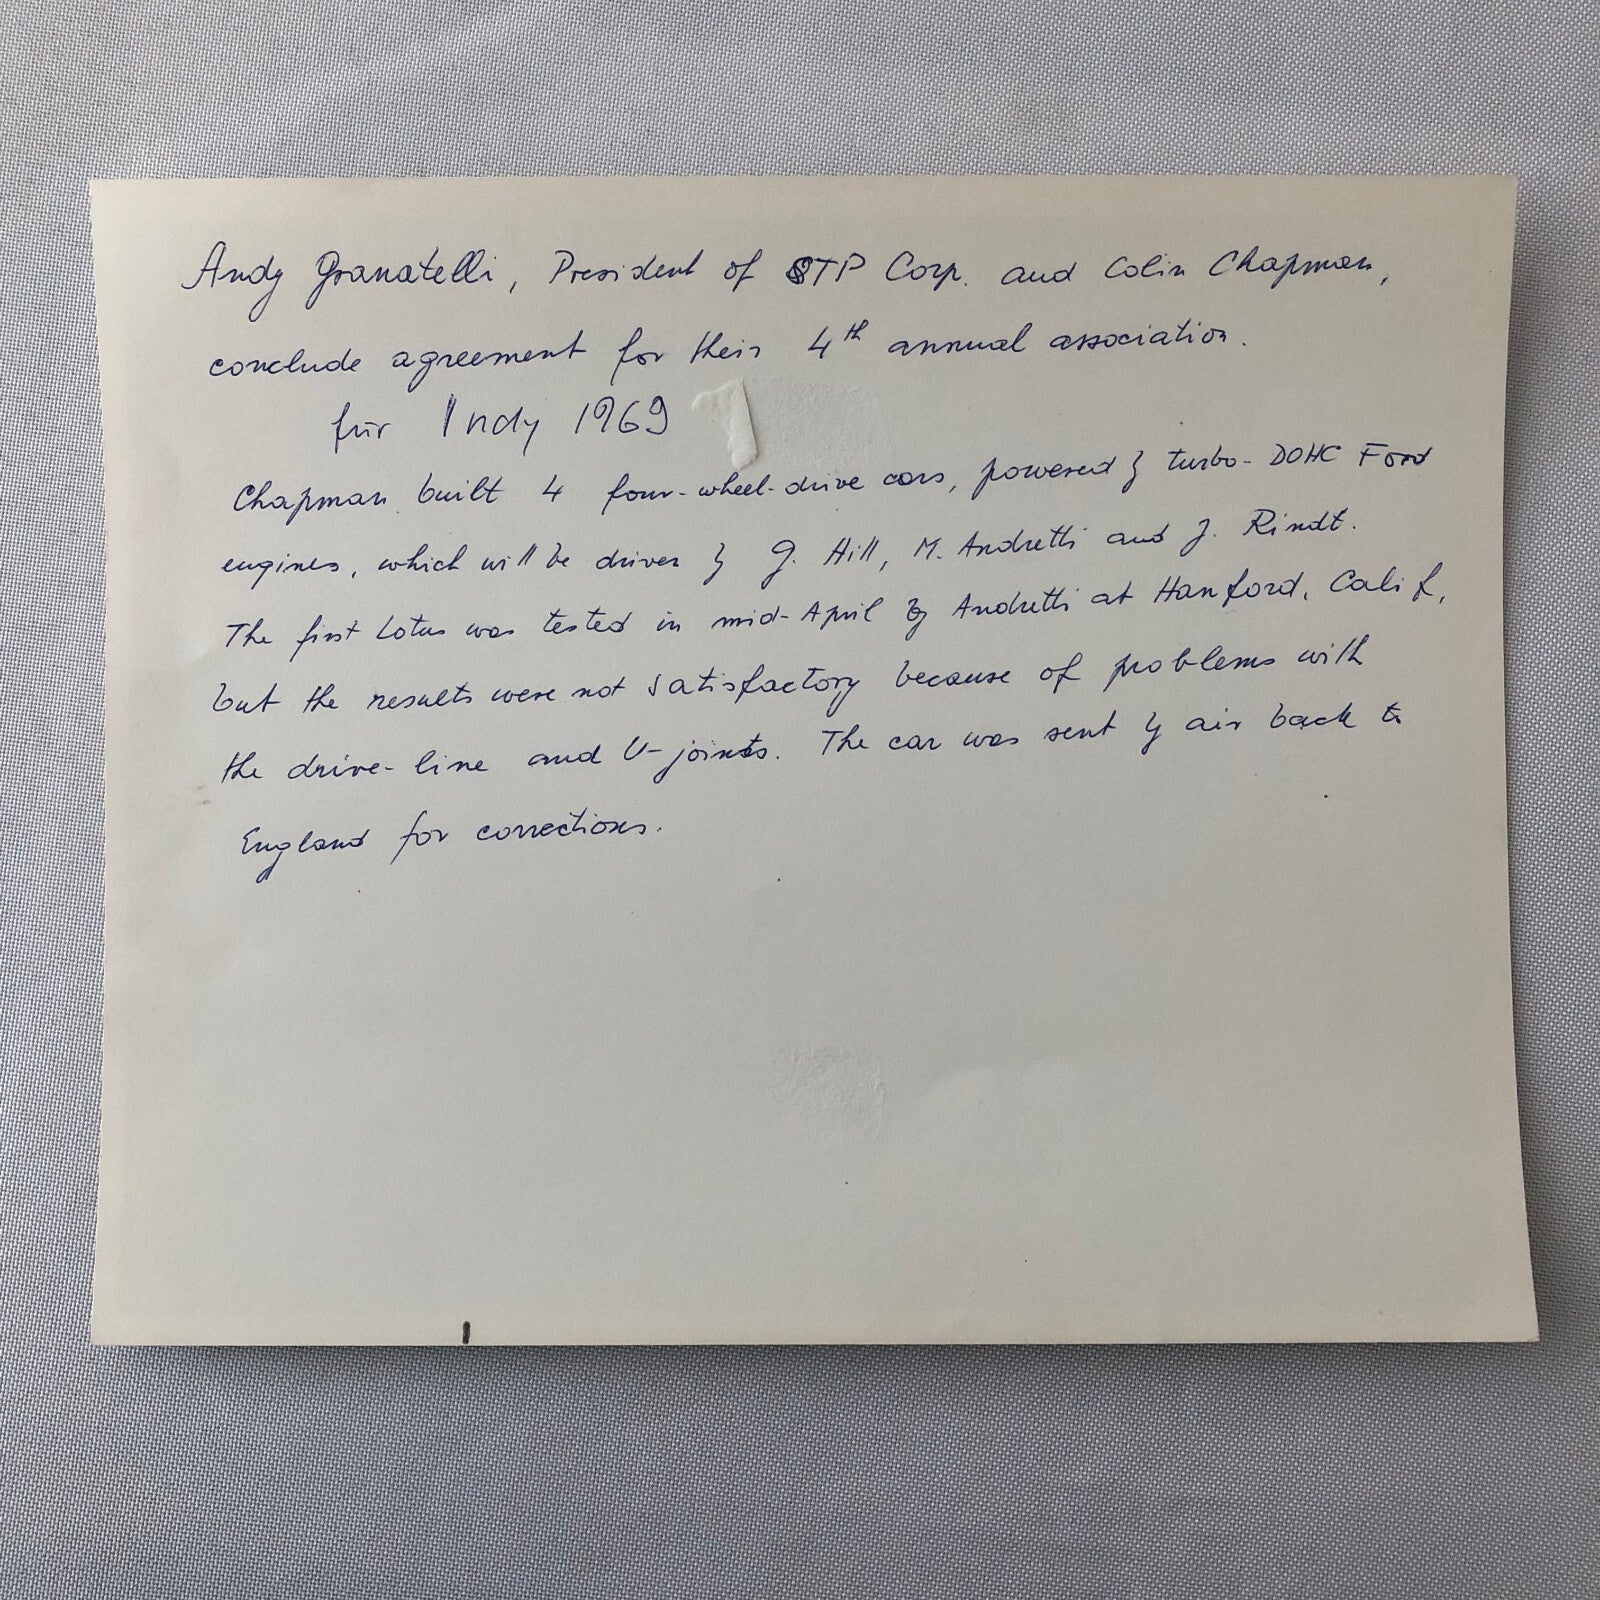 Andy Granatelli, President of STP Corp. and Colin Chapman,
conclude agreement for their 4th annual association.
für Indy 1969
Chapman built 4 four-wheel-drive cars, powered by turbo-DOHC Ford
engines, which will be driven by G. Hill, M. Andretti and J. Rindt.
The first Lotus was tested in mid-April by Andretti at Hanford, Calif,
but the results were not satisfactory because of problems with
the drive-line and U-joints. The car was sent by air back to
England for corrections.